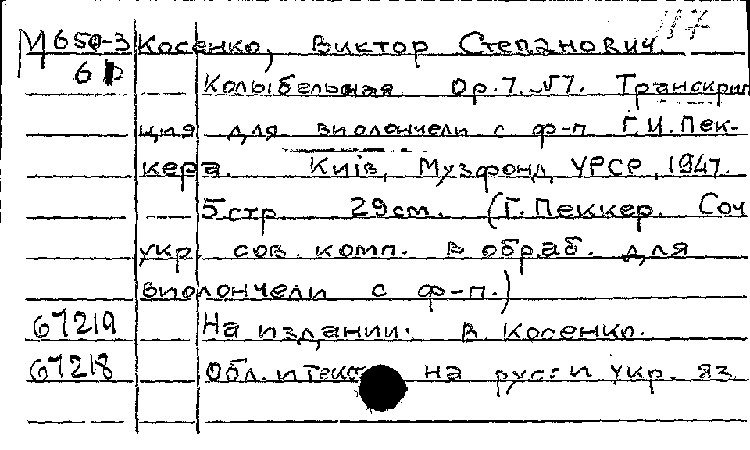 117
М 650-3 Косенко, Виктор Степанович.
6
Колыбельная Ор.7. №7. Транскрип
ция для виолончели с ф-п Г.И.Пек-
кера. Київ, Музфонд УРСР, 1947.
5 стр. 29 см. (Г. Пеккер. Соч
укр. сов. комп. в обраб. для
виолончели с ф-п.)
67219 На издании: В. Косенко.
67218 Обл. и текст на рус. и укр. яз